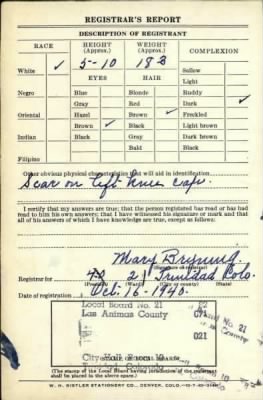 REGISTRAR'S REPORT
DESCRIPTION OF REGISTRANT
RACE HEIGHT (Approx.) WEIGHT (Approx.) COMPLEXION
White ✓ 5-10 183 Sallow
EYES HAIR Light
Negro Blue Blonde Ruddy
Gray Red Dark ✓
Oriental Hazel Brown Freckled
Brown ✓ Black ✓ Light brown
Indian Black Gray Dark brown
Bald Black
Filipino
Other obvious physical characteristics that will aid in identification
Scar on left knee cap.
I certify that my answers are true; that the person registered has read or has had
read to him his own answers; that I have witnessed his signature or mark and that
all of his answers of which I have knowledge are true, except as follows:
Mary
(Signature of registrar)
Registrar for 21 Trinidad Colo.
(Precinct) (Ward) (City or county) (State)
Date of registration Oct-16-1940.
Local Board No. 21
Las Animas County 071
021
City Hall Room 10
Trinidad, Colorado
(The stamp of the Local Board having jurisdiction of the registrant
shall be placed in the above space.)
W. H. KISTLER STATIONERY CO., DENVER, COLO.